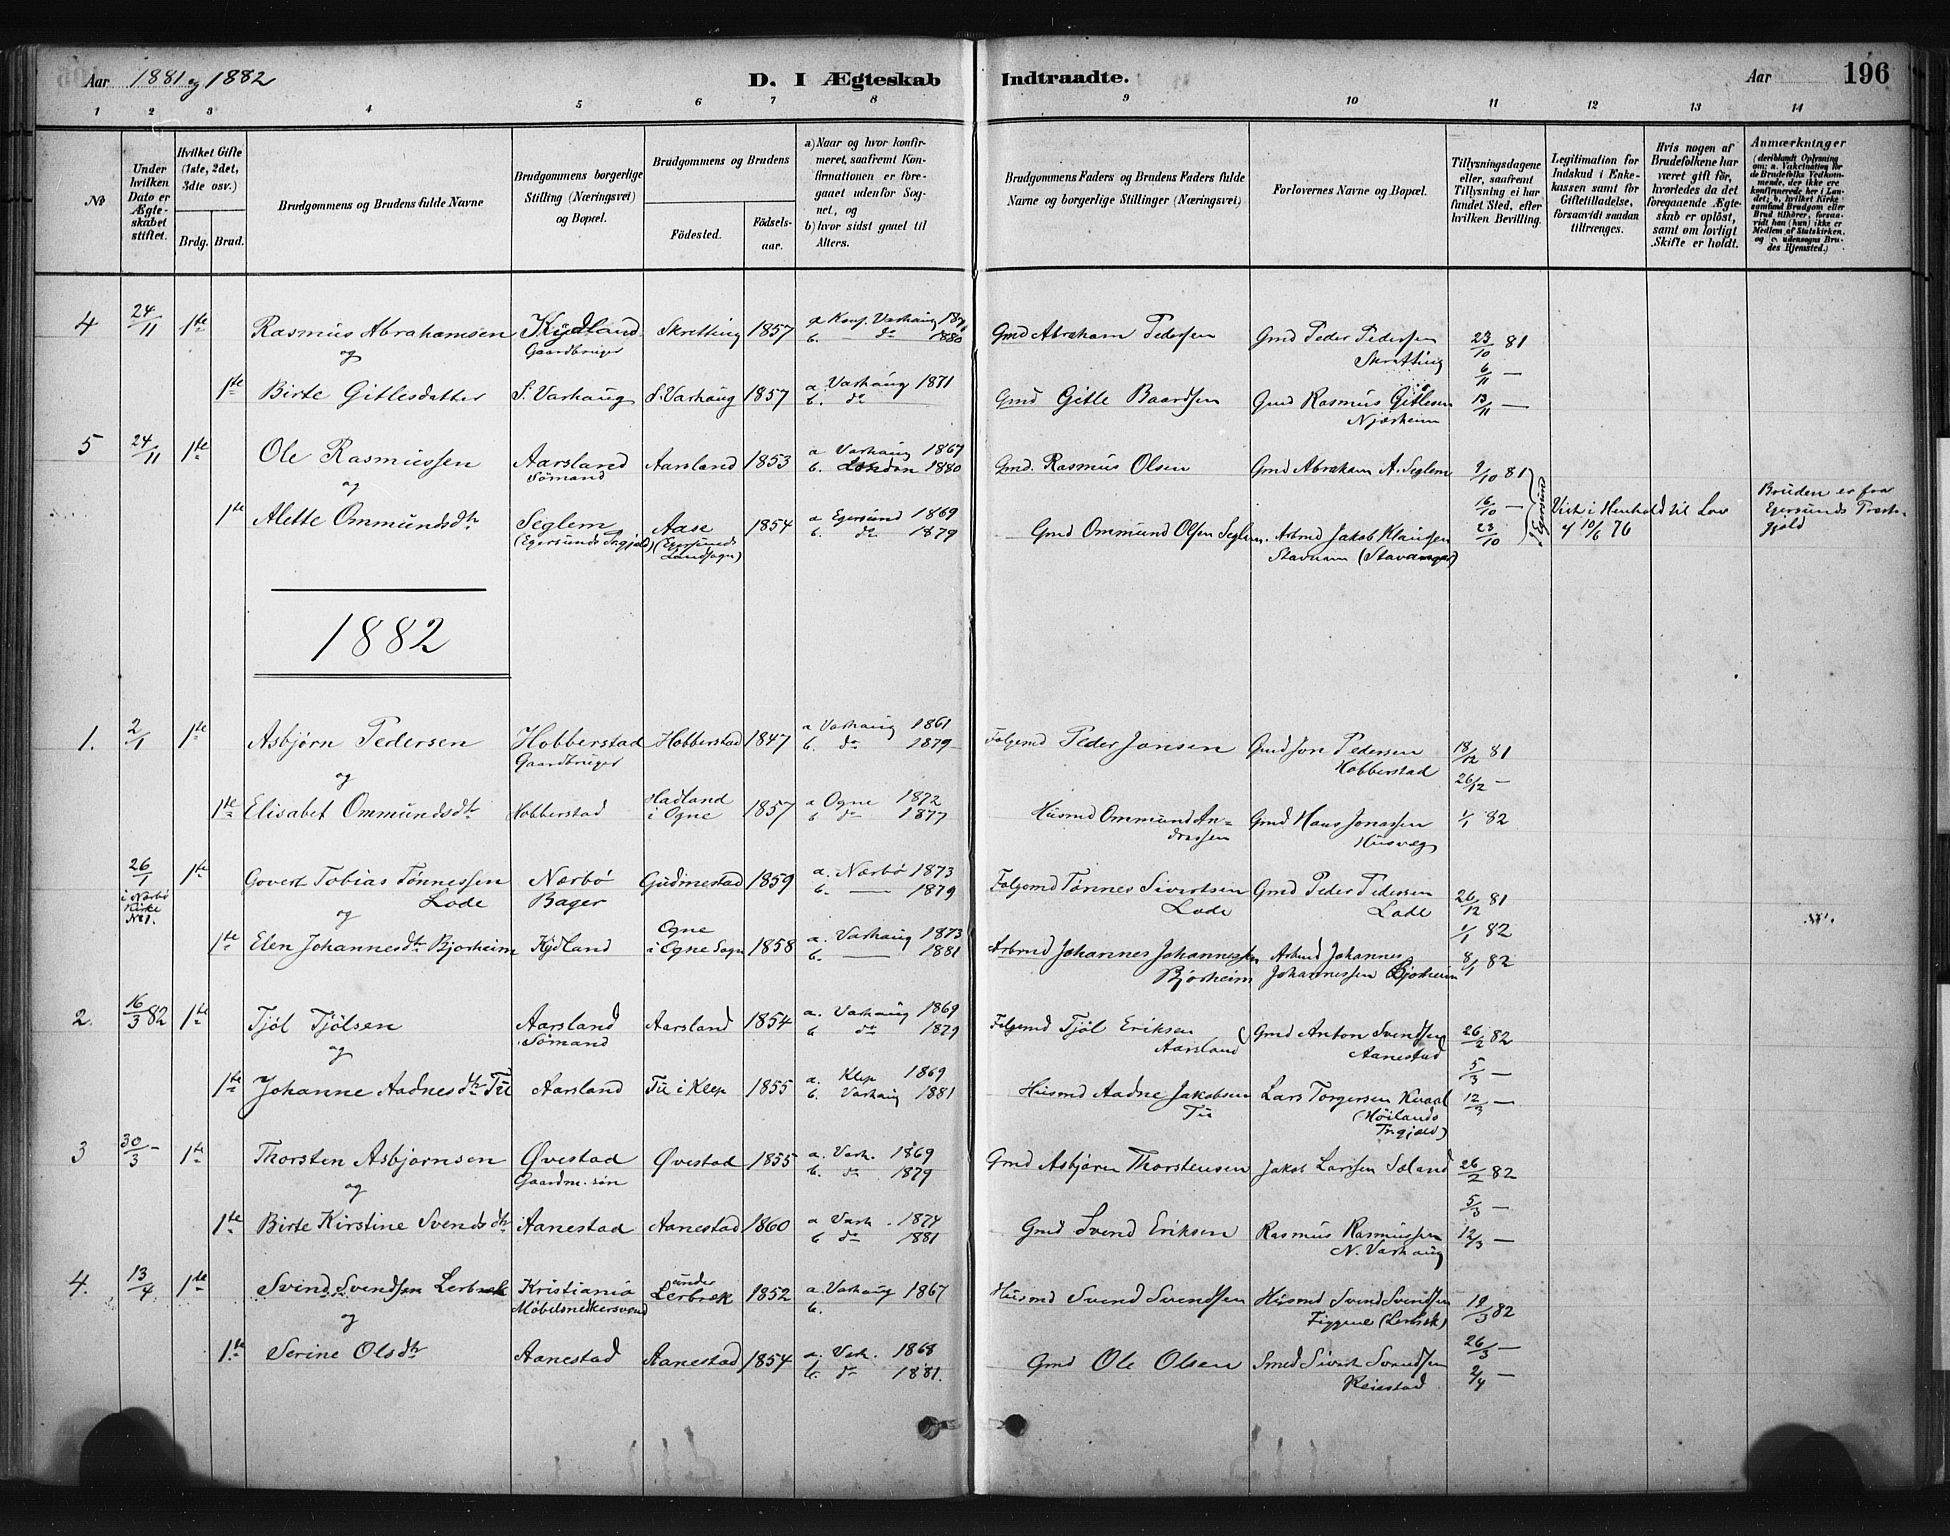 Aar 1881 og 1882 D. I Ægteskab Indtraadte. Aar 196
1 2 3 4 5 6 7 8 9 10 11 12 13 14
No
Under hvilken Dato er Ægteskabet stiftet.
Hvilket Gifte (1ste, 2det, 3dte osv.)
Brdg. Brud.
Brudgommens og Brudens fulde Navne
Brudgommens borgerlige Stilling (Næringsvei) og Bopæl.
Brudgommens og Brudens
Födested. Födsels-aar.
a) Naar og hvor konfirmeret, saafremt Konfirmationen er foregaaet udenfor Sognet, og
b) hvor sidst gaaet til Alters.
Brudgommens Faders og Brudens Faders fulde Navne og borgerlige Stillinger (Næringsvei)
Forlovernes Navne og Bopæl.
Tillysningsdagene eller, saafremt Tillysning ei har fundet Sted, efter hvilken Bevilling.
Legitimation for Indskud i Enkekassen samt for Giftetilladelse, forsaavidt saadan tiltrænges.
Hvis nogen af Brudefolkene har været gift för, hvorledes da det foregaaende Ægteskab er oplöst, samt om lovligt Skifte er holdt.
Anmærkninger
(deriblandt Oplysning om: a. Vakcination for de Brudefolks Vedkommende, der ikke ere konfirmerede her i Landet; b. hvilket Kirkesamfund Brudgom eller Brud tilhörer, forsaavidt han (hun) ikke er Medlem af Statskirken, og c. udensogns Brudes Hjemsted.)
4 24/11 1ste Rasmus Abrahamsen Kydland Skretting 1857 a Konf. Varhaug b. do 1880 Gmd Abraham Pedersen Gmd Peder Pedersen 23/10 81
og Gaardbruger Skretting 6/11 —
1ste Birte Gitlesdatter S. Varhaug S. Varhaug 1857 a. Varhaug 1871 b. do Gmd Gitle Baardsen Gmd Rasmus Gitlesen 13/11 —
Njærheim
5 24/11 1ste Ole Rasmussen Aarsland Aarsland 1853 a Varhaug 1867 b. London 1880 Gmd. Rasmus Olsen Gmd Abraham A. Seglem 9/10 81
og Sømand 16/10 —
1ste Alette Ommundsdtr Seglem Aase 1854 a Egersund 1869 b. do 1879 Gmd Ommund Olsen Seglem. Arbmd Jakob Klausen 23/10 i Egersund Vist i Henhold til Lov Bruden er fra
(Egersunds Prgjeld) (Egersunds Landsogn) Stavnam (Stavanger) af 10/6 76 Egersunds Præstegjeld
1882
1. 2/1 1ste Asbjørn Pedersen Hobberstad Hobberstad 1847 a Varhaug 1861 b. do 1879 Folgemd Peder Jonsen Gmd Jon Pedersen 18/12 81
og Gaardbruger Hobberstad 26/12 —
1ste Elisabet Ommundsdtr Hobberstad Hadland i Ogne 1857 a Ogne 1872 b do 1877 Husmd Ommund Andreassen Gmd Hans Jonassen 1/1 82
Husvæg
26/1 1ste Govert Tobias Tønnessen Nærbø Gudmestad 1859 a. Nærbø 1873 b. — 1879 Folgemd Tønnes Sivertsen Gmd Peder Pedersen 26/12 81
i Nærbø Kirke No 1. og Lode Bager Lode Lode 1/1 82
1ste Elen Johannesdtr Bjorheim Kydland Ogne i Ogne Sogn 1858 a. Varhaug 1873 b. — 1881 Arbmd Johannes Johannessen Arbmd Johannes 8/1 82
Bjorheim Johannessen Bjorheim
2. 16/3 82 1ste Tjöl Tjölsen Aarsland Aarsland 1854 a. Varhaug 1869 b do 1879 Folgemd Tjöl Eriksen Gmd Anton Svendsen 26/2 82
og Sømand Aarsland Aanestad 5/3 —
1ste Johanne Aadnesdtr Tu Aarsland Tu i Klep 1855 a. Klep 1869 b. Varhaug 1881 Husmd Aadne Jakobsen Lars Torgersen Kvaal 12/3 —
Tu (Høilands Prgjeld)
3 30/3 — 1ste Thorsten Asbjørnsen Øvestad Øvestad 1855 a. Varh. 1869 b. do 1879 Gmd Asbjørn Thorstensen Jakob Larsen Sæland 26/2 82
og Gaardm. søn 5/3 —
1ste Birte Kirstine Svendsdtr Aanestad Aanestad 1860 a Varh. 1874 b do 1881 Gmd Svend Eriksen Rasmus Rasmussen 12/3 —
N. Varhaug
4. 13/4 1ste Svend Svendsen Lerbræk Kristiania under Lerbræk 1852 a. Varhaug 1867 b. Husmd Svend Svendsen Husmd Svend Svendsen 19/3 82
og Møbelsnedkersvend Figgene (Lerbræk) 26/3 —
1ste Serine Olsdtr Aanestad Aanestad 1854 a. Varh. 1868 b. do 1881. Gmd Ole Olsen Smed Sivert Svendsen 2/4 —
Reiestad